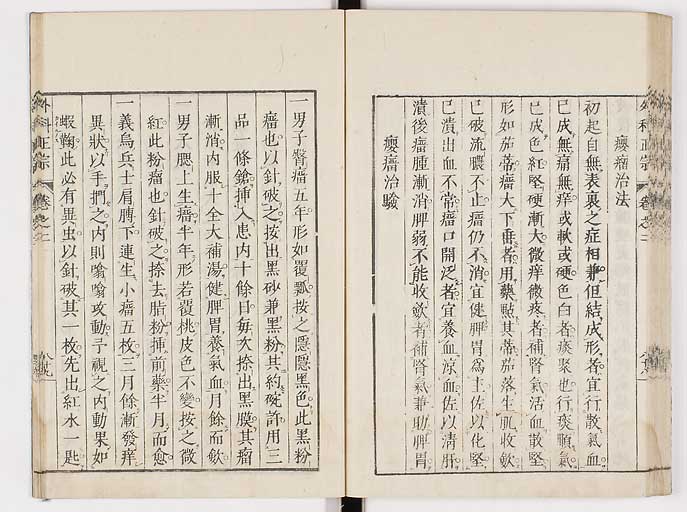 癭瘤治法
初起自無表裏之症相兼但結成形者宜行散氣血
已成無痛無痒或軟或硬色白者痰聚也行痰順氣
已成色紅堅硬漸大微痒微疼者補腎氣活血散堅
形如茄蒂瘤大下垂者用藥㸃其蒂茄落生肌收歛
已破流膿不止瘤仍不消宜健脾胃為主佐以化堅
已潰出血不常瘤口開泛者宜養血凉血佐以清肝
潰後瘤腫漸消脾弱不能收歛者補腎氣兼助脾胃
癭瘤治驗
一男子臀瘤五年形如覆瓢按之隱隱黑色此黑粉
瘤也以針破之按出黑砂兼黑粉共約碗許用三
品一條鎗挿入患内十餘日每次捺出黑膜其瘤
漸消内服十全大補湯健脾胃養氣血月餘而歛
一男子腮上生瘤半年形若覆桃皮色不變按之微
紅此粉瘤也針破之捺去脂粉挿前藥半月而愈
一義烏兵士肩膊下連生小瘤五枚三月餘漸發痒
異狀以手捫之内則噏噏攻動予視之内動果如
蝦鞠此必有異虫以針破其一枚先出紅水一匙
外科正宗
卷之二
外科正宗
卷之二